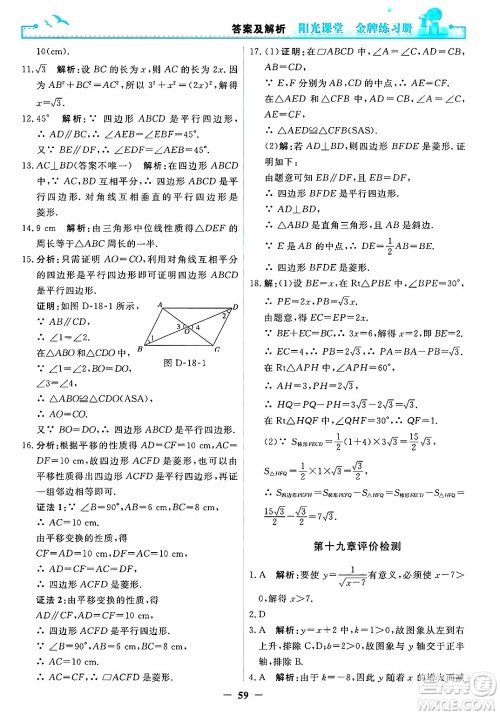 答案及解析 阳光课堂 金牌练习册
10(cm).
11.√3 解析:设 BC 的长为 x,根据勾股定理得
AB²+BC²=AC²,所以 3²+x²=(2x)²,解得 x=√3.
12.45° 解析:∵ 四边形 ABCD 是平行四边形,
∴ AD∥BC,∴ ∠AEB=∠EBF=45°.
又∵ BE∥DF,∴ ∠ADF=∠AEB=45°.
13.AC⊥BD(答案不唯一) 解析:在四边形 ABCD
中,∵ AC,BD 互相平分,∴ 四边形 ABCD 是平
行四边形.对角线互相垂直的平行四边形是
菱形.
14.9 cm 解析:由三角形中位线性质得△DEF 的
周长等于△ABC 周长的一半.
15.分析:只需证明 AO=CO,利用对角线互相平分
的四边形是平行四边形可得四边形 ABCD 是
平行四边形.
证明:如图 D-18-1 所示,
∵ AD∥BC,
∴ ∠1=∠2.
在△ABO 和△CDO 中,
∵ ∠3=∠4,
∴ △ABO≌△CDO(ASA).
∴ AO=CO.
又∵ BO=DO,∴ 四边形 ABCD 是平行四边形.
A D B C O 1 2 3 4
图 D-18-1
16.分析:根据平移的性质得 AD=CF=10 cm,AD∥
CF,故四边形 ACFD 是平行四边形,可由平移
性质得出四边形 ACFD 是平行四边形,再证明
一组邻边相等即可.
证法 1:∵ ∠B=90°,AB=6 cm,BC=8 cm,
∴ AC=10 cm.
由平移变换的性质,得
CF=AD=10 cm,DF=AC=10 cm.
∴ AD=CF=AC=DF.
∴ 四边形 ACFD 是菱形.
证法 2:由平移变换的性质,得
AD∥CF,AD=CF=10 cm,
∴ 四边形 ACFD 是平行四边形.
∵ ∠B=90°,AB=6 cm,BC=8 cm,
∴ AC=10 cm.∴ AD=AC.
∴ 四边形 ACFD 是菱形.
17.(1)证明:在▱ABCD 中,AB=CD,BC=AD,
∠ABC=∠CDA.
∵ BE=EC=1/2 BC,AF=DF=1/2 AD,
∴ BE=DF.
∴ △ABE≌△CDF(SAS).
(2)解:若 AD⊥BD,则四边形 BFDE 是菱形.证
明如下:
由题意可知 BE∥DF,且 BE=DF,
∴ 四边形 BFDE 是平行四边形.
∵ AD⊥BD,
∴ △ABD 是直角三角形,且 AB 是斜边.
又∵ E 是 AB 的中点,∴ DE=1/2 AB=BE.
∴ 平行四边形 BFDE 是菱形.
18.解:(1)设 BE=x,在 Rt△PBE 中,∠BPE=30°,
∴ PB=2x,PE=√3x.
由题意,得 PE=EC,PB=BC.
∵ BE+EC=BC,∴ 3x=6,x=2.
∴ EC=4,PB=PC=2√3.
在 Rt△APH 中,∠APH=60°,AP=√3,
∴ AH=3,PH=2√3.
∴ HQ=PQ-PH=2√3.
在 Rt△HFQ 中,∠HFQ=30°,∴ QF=1.
(2)∵ S梯形FECD=1/2(1+4)×2√3=5√3,
S△HFQ=1/2×1×√3=√3/2,
∴ S四边形PCFH=S梯形PCFQ-S△HFQ=5√3-√3/2
=9√3/2.
第十九章评价检测
1.A 解析:由 y=1/√(x-7) 有意义,必须 x-7>
0.解得 x>7.
2.D
3.A 解析:由 y=x+2 中,k>0,故图象从左向右
上升,排除 B,D,又图象与 y 轴交于正半轴.
4.A 解析:由于 k=-8,故图象 y 随着 x 的增大而减
59